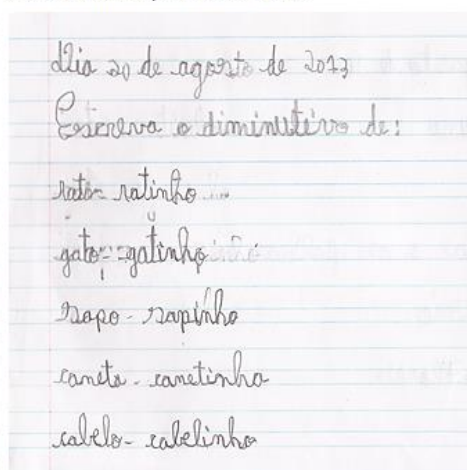 Dia 20 de agosto de 2013
Escreva o diminutivo de:
rato- ratinho
gato- gatinho
sapo- sapinho
caneta- canetinha
cabelo- cabelinho